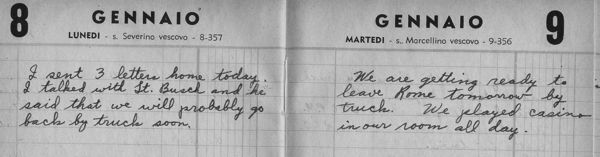 8
GENNAIO
LUNEDI - s. Severino vescovo - 8-357
I sent 3 letters home today.
I talked with Lt. Busch and he
said that we will probably go
back by truck soon.
GENNAIO
9
MARTEDI - s. Marcellino vescovo - 9-356
We are getting ready to
leave Rome tomorrow by
truck. We played casino
in our room all day.